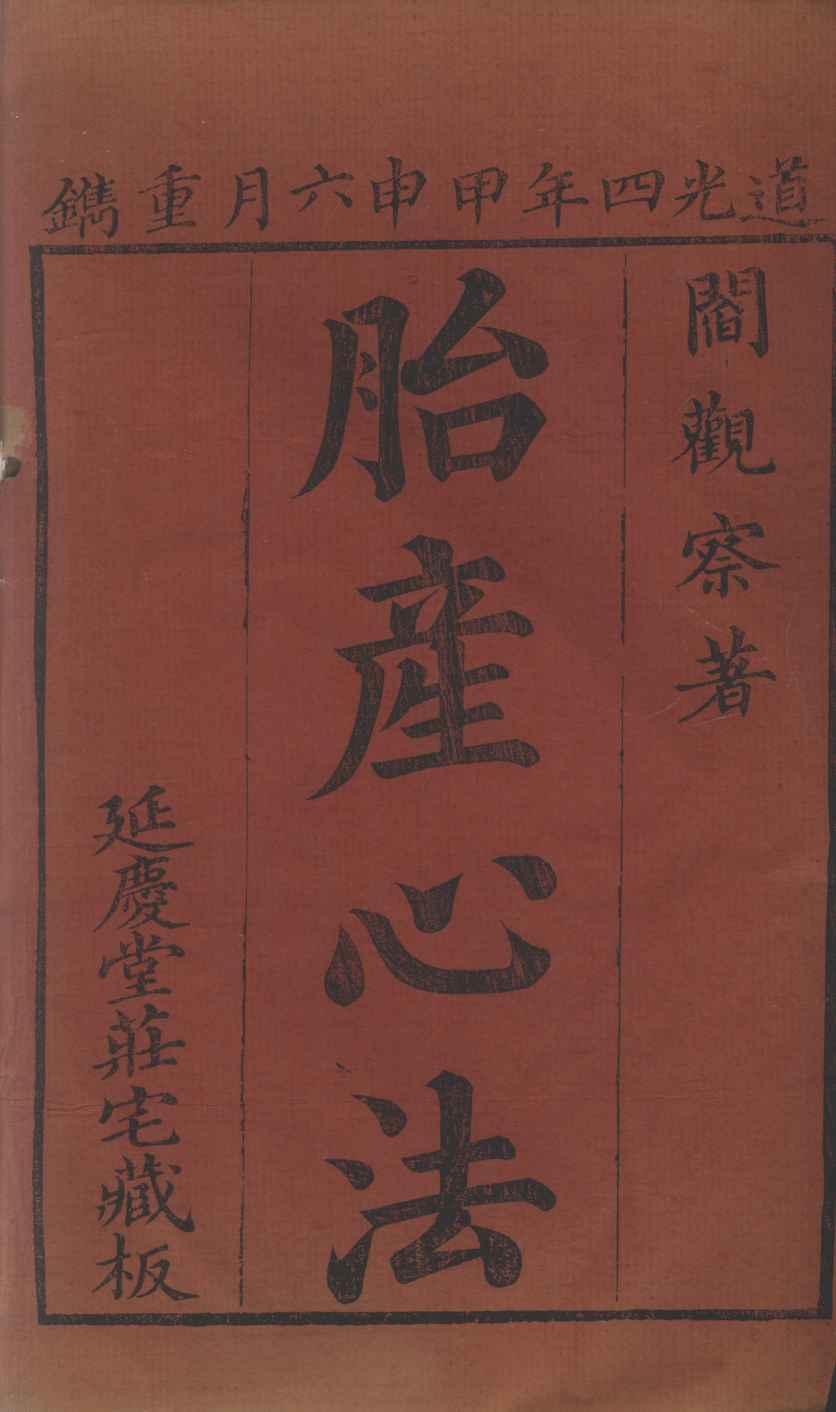 道光四年甲申六月重鐫
閻觀察著
胎產心法
延慶堂莊宅藏板